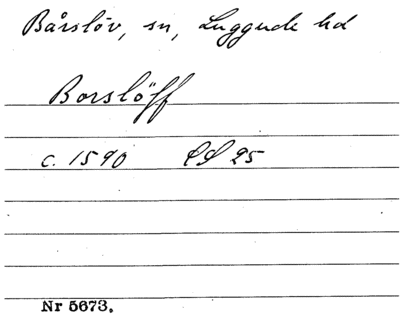 Bårslöv, sn, Luggude hd
Borslöff
c. 1590 25
Nr 5673.